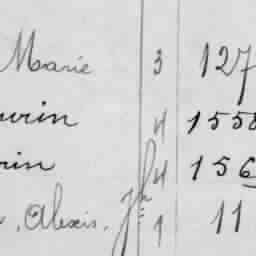 Marie 3 127
4 155
rin 4 156
Alexis. 1 11